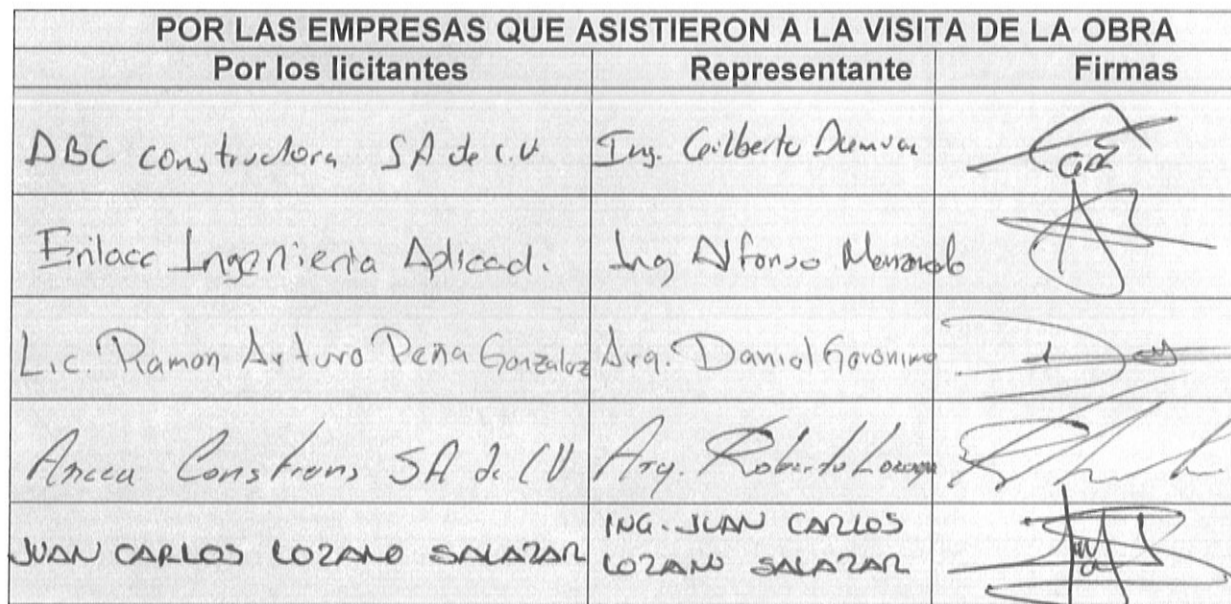 POR LAS EMPRESAS QUE ASISTIERON A LA VISITA DE LA OBRA
Por los licitantes Representante Firmas
DBC constructora SA de C.V Ing. Gilberto
Enlace Ingenieria Aplicad. Ing Alfonso
Lic. Ramon Arturo Peña Gonzalez Arq. Daniel Geronimo
SA de CV Arq. Roberto
JUAN CARLOS LOZANO SALAZAR ING. JUAN CARLOS
LOZANO SALAZAR